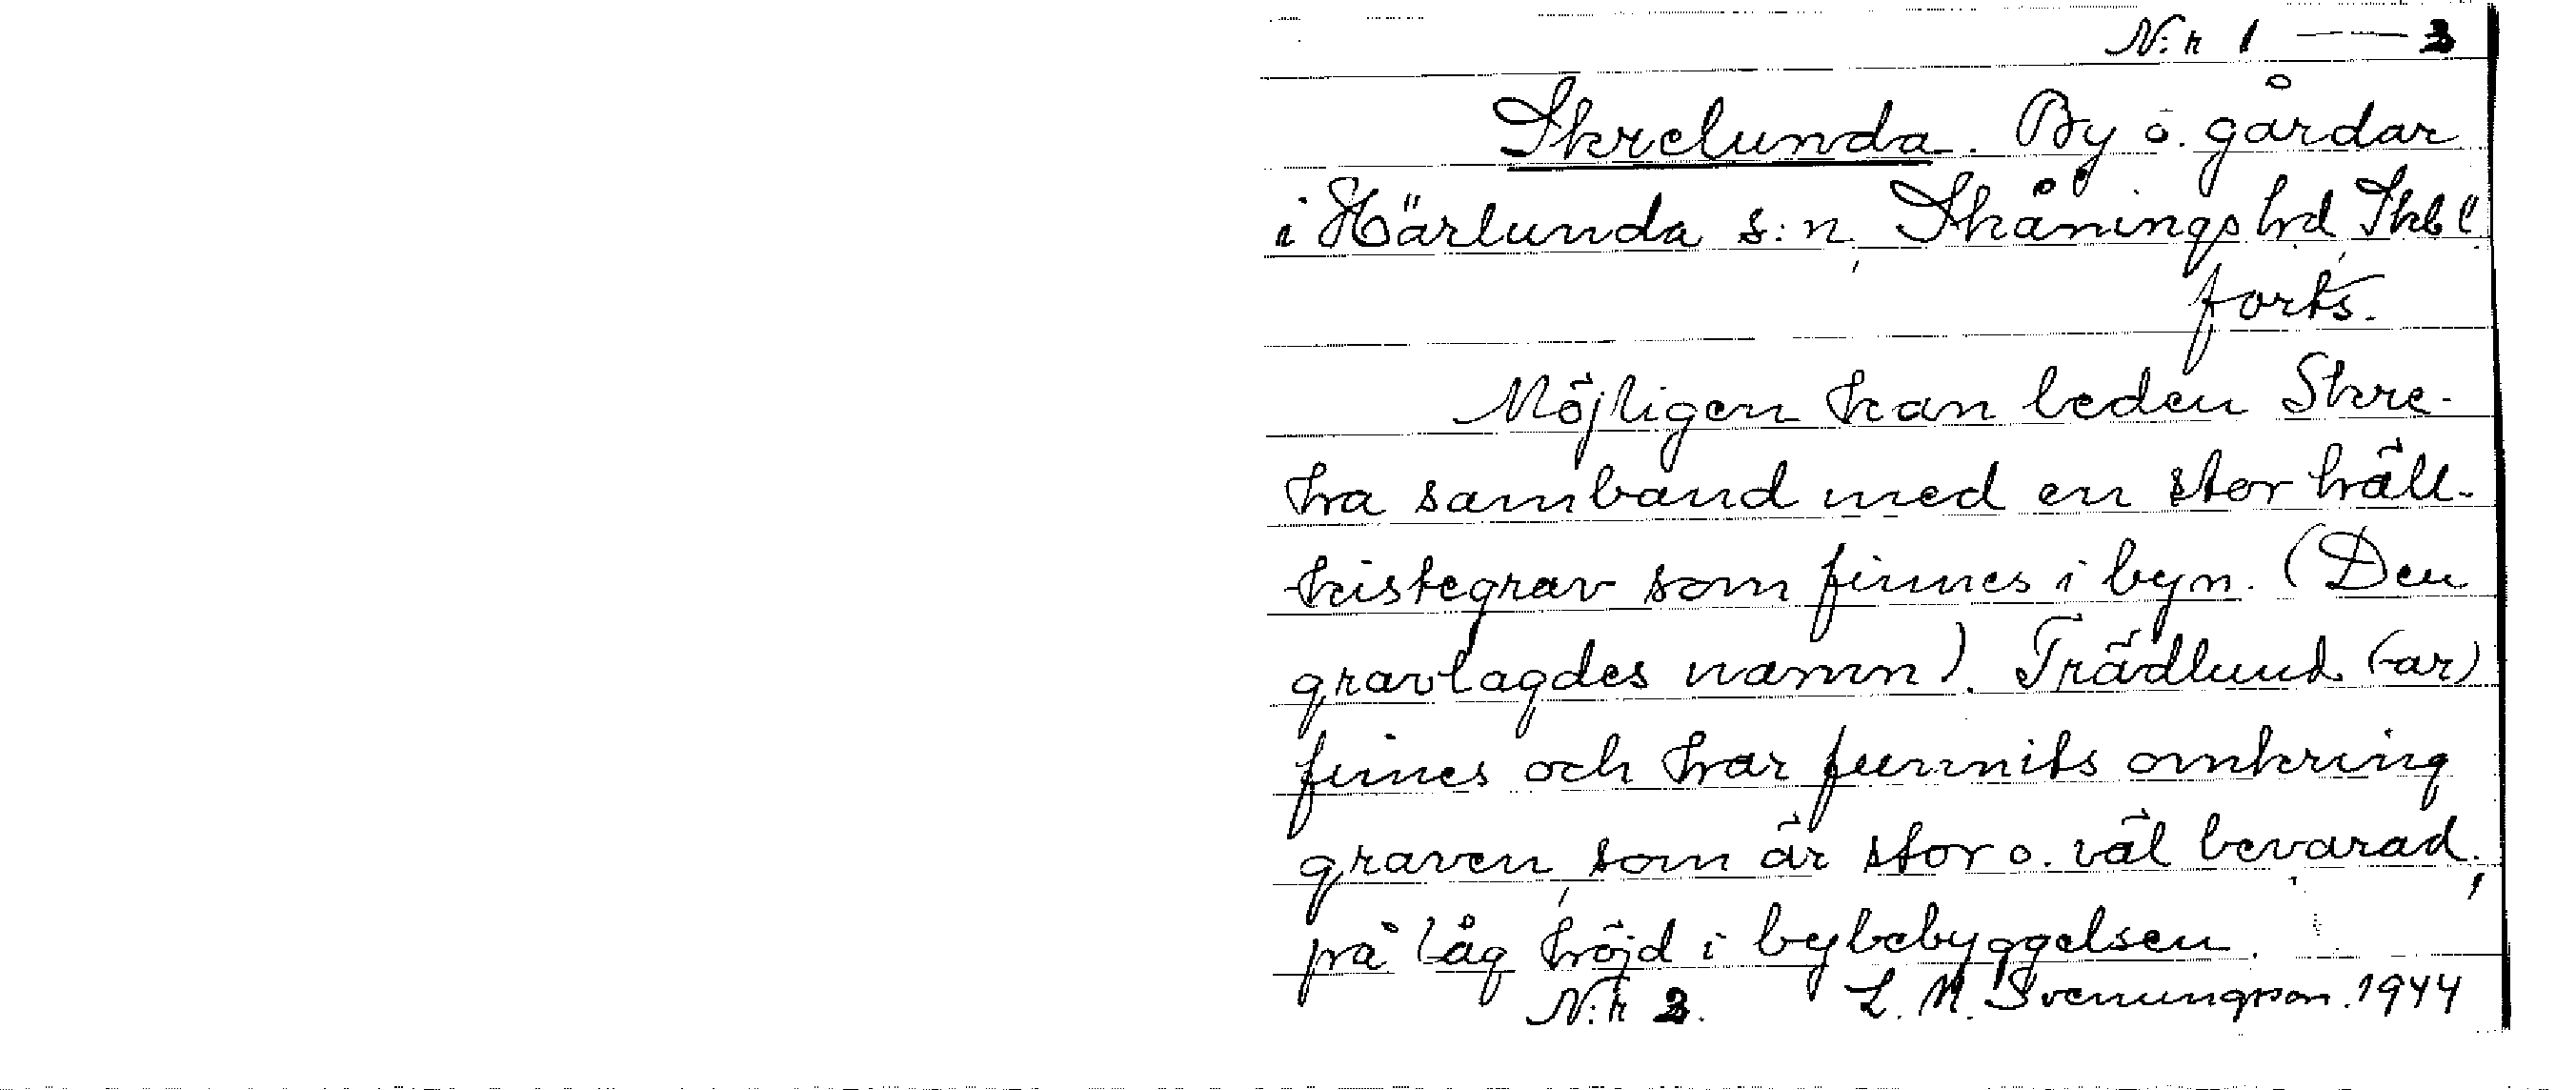 N:r 1 — 3
Skrelunda. By o. gårdar
i Härlunda s:n, Skånings hd, Skbl.
forts.
Möjligen kan leden Skre-
ha samband med en stor häll-
kistegrav som finnes i byn. (Den
gravlagdes namn). Trädlund (-ar)
finnes och har funnits omkring
graven, som är stor o. väl bevarad,
på låg höjd i bybebyggelsen.
N:r 3. L. M. Svenungsson. 1944